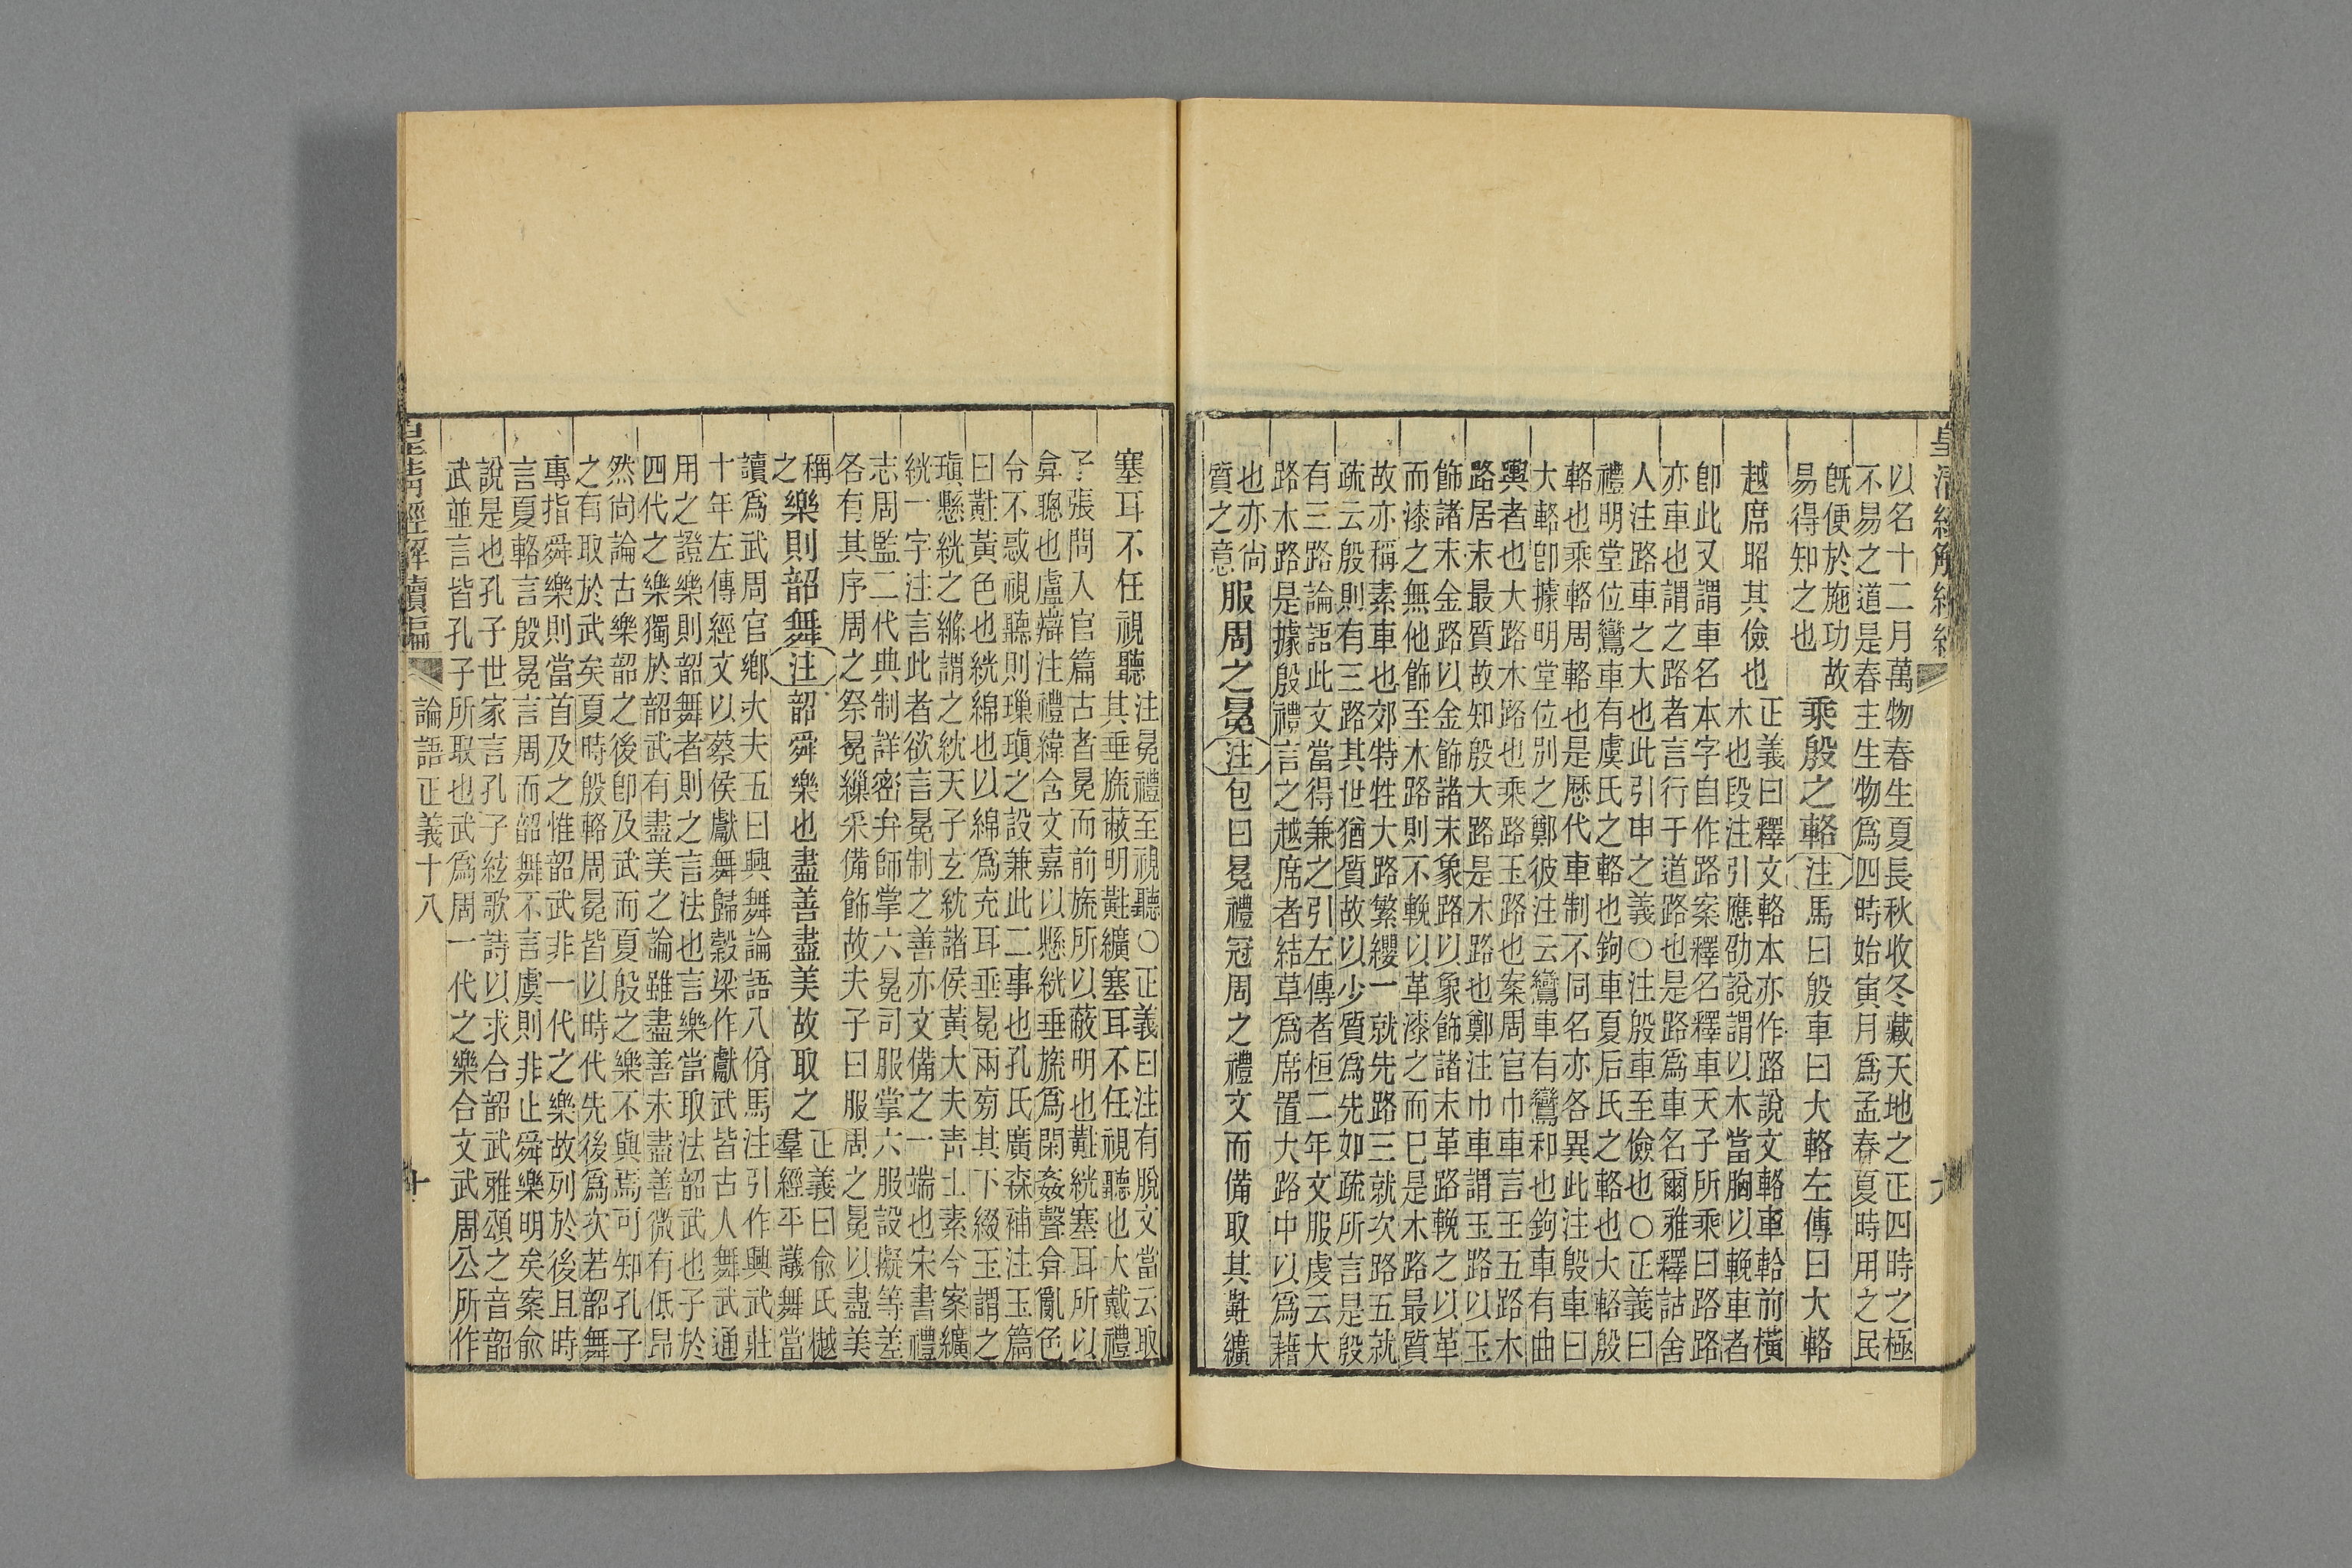 皇清經解續編
以名十二月萬物春生夏長秋收冬藏天地之正四時之極
不易之道是春主生物爲四時始寅月爲孟春夏時用之民
既便於施功故
易得知之也
乘殷之輅注馬曰殷車曰大輅左傳曰大輅
越席昭其儉也
正義曰釋文輅本亦作路說文輅車軨前橫
木也段注引應劭說謂以木當胸以輓車者
卽此又謂車名本字自作路案釋名釋車天子所乘曰路路
亦車也謂之路者言行于道路也是路爲車名爾雅釋詁舍
人注路車之大也此引申之義○注殷車至儉也○正義曰
禮明堂位鸞車有虞氏之輅也鉤車夏后氏之輅也大輅殷
輅也乘輅周輅也是歷代車制不同名亦各異此注殷車曰
大輅卽據明堂位別之鄭彼注云鸞車有鸞和也鉤車有曲
輿者也大路木路也乘路玉路也案周官巾車言王五路木
路居末最質故知殷大路是木路也鄭注巾車謂玉路以玉
飾諸末金路以金飾諸末象路以象飾諸末革路輓之以革
而漆之無他飾至木路則不輓以革漆之而已是木路最質
故亦稱素車也郊特牲大路繁纓一就先路三就次路五就
疏云殷則有三路其世猶質故以少質爲先如疏所言是殷
有三路論語此文當得兼之引左傳者桓二年文服虔云大
路木路是據殷禮言之越席者結草爲席置大路中以爲藉
也亦尚
質之意
服周之冕注包曰冕禮冠周之禮文而備取其黈纊
塞耳不任視聽
注冕禮至視聽○正義曰注有脫文當云取
其垂旒蔽明黈纊塞耳不任視聽也大戴禮
子張問入官篇古者冕而前旒所以蔽明也黈絖塞耳所以
弇聰也盧辯注禮緯含文嘉以懸絖垂旒爲閑姦聲弇亂色
令不惑視聽則瓅瑱之設兼此二事也孔氏廣森補注玉篇
曰黈黃色也絖綿也以綿爲充耳垂冕兩旁其下綴玉謂之
瑱懸絖之縧謂之紞天子玄紞諸侯黃大夫靑士素今案纊
絖一字注言此者欲言冕制之善亦文備之一端也宋書禮
志周監二代典制詳密弁師掌六冕司服掌六服設擬等差
各有其序周之祭冕繅采備飾故夫子曰服周之冕以盡美
稱
之
樂則韶舞注韶舜樂也盡善盡美故取之
正義曰俞氏樾
羣經平議舞當
讀爲武周官鄉大夫五曰興舞論語八佾馬注引作興武莊
十年左傳經文以蔡侯獻舞歸穀梁作獻武皆古人舞武通
用之證樂則韶舞者則之言法也言樂當取法韶武也子於
四代之樂獨於韶武有盡美之論雖盡善未盡善微有低昂
然尚論古樂韶之後卽及武而夏殷之樂不與焉可知孔子
之有取於武矣夏時殷輅周冕皆以時代先後爲次若韶舞
專指舜樂則當首及之惟韶武非一代之樂故列於後且時
言夏輅言殷冕言周而韶舞不言虞則非止舜樂明矣案俞
說是也孔子世家言孔子絃歌詩以求合韶武雅頌之音韶
武並言皆孔子所取也武爲周一代之樂合文武周公所作
皇清經解續編 論語正義十八 十